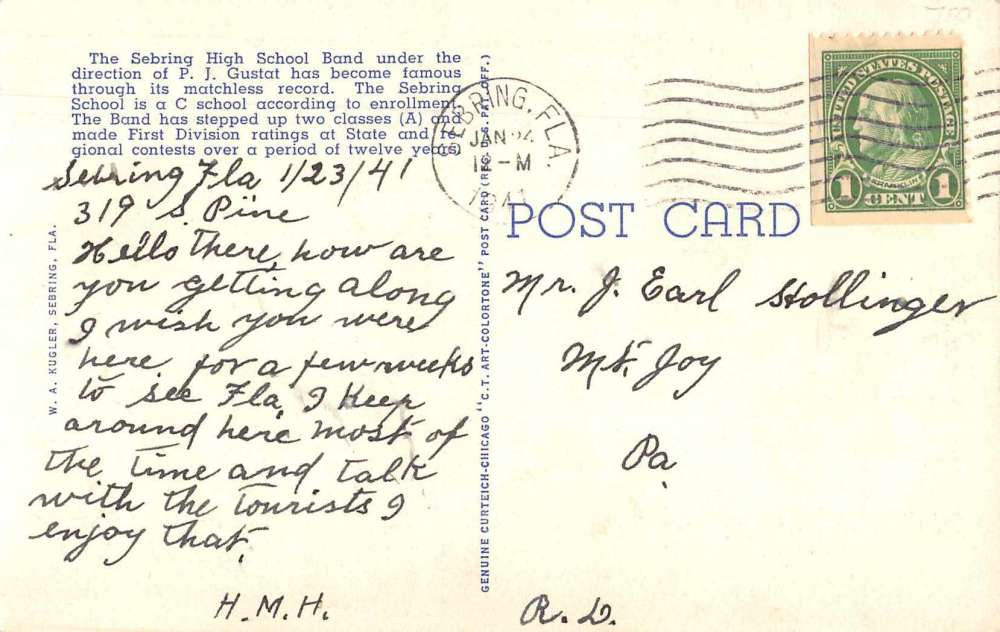 The Sebring High School Band under the
direction of P. J. Gustat has become famous
through its matchless record. The Sebring
School is a C school according to enrollment.
The Band has stepped up two classes (A) and
made First Division ratings at State and re-
gional contests over a period of twelve years.
Sebring Fla 1/23/41
319 S. Pine
Hello there, how are
you getting along
I wish you were
here for a few weeks
to see Fla, I keep
around here most of
the time and talk
with the tourists I
enjoy that.
H.M.H.
W. A. KUGLER, SEBRING, FLA.
GENUINE CURTEICH-CHICAGO "C.T. ART-COLORTONE" POST CARD (REG. U.S. PAT. OFF.)
SEBRING, FLA.
JAN 24
1941
UNITED STATES POSTAGE
FRANKLIN
1 CENT 1
POST CARD
Mr. J. Earl Hollinger
Mt. Joy
Pa.
R. D.